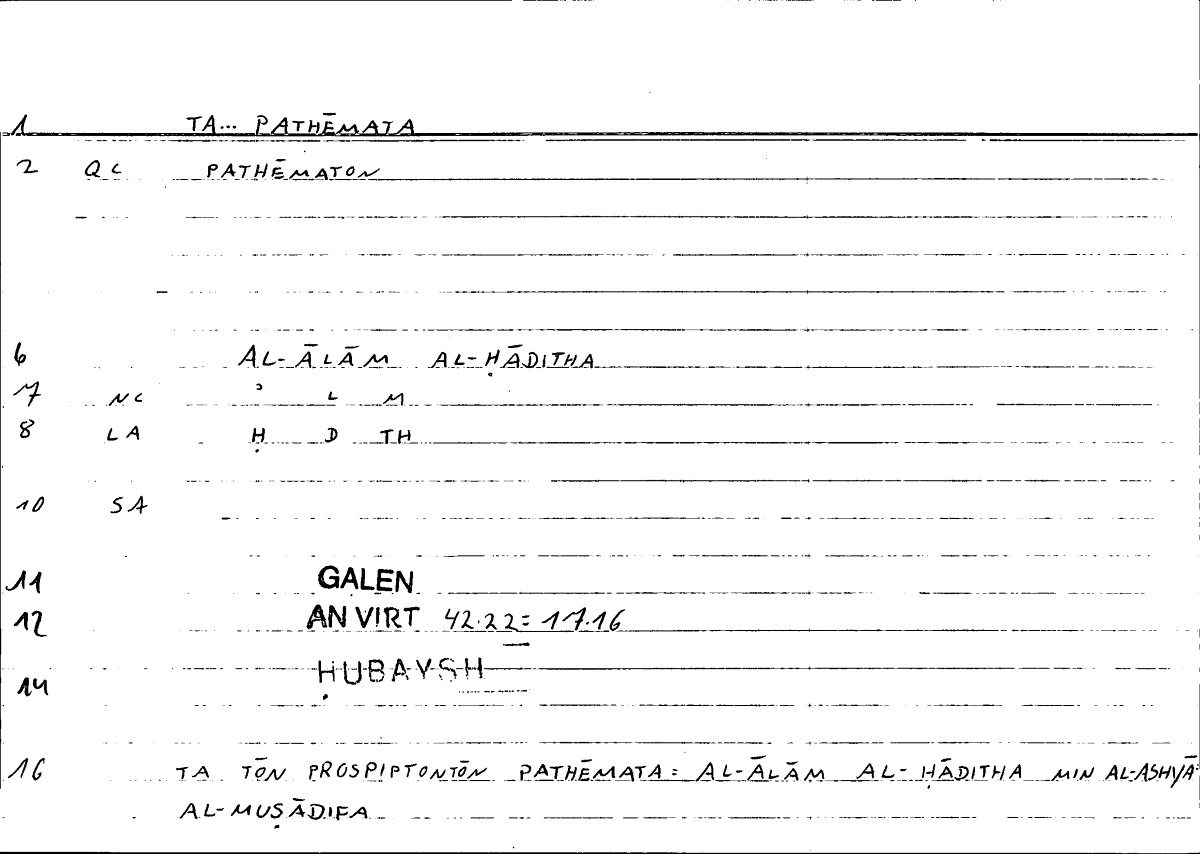 1 TA... PATHĒMATA
2 QC PATHĒMATON
6 AL-ĀLĀM AL-ḤĀDITHA
7 NC ʾ L M
8 LA Ḥ D TH
10 SA
11 GALEN
12 AN VIRT 42.22 = 17.16
14 ḤUBAYSH
16 TA TŌN PROSPIPTONTŌN PATHĒMATA = AL-ĀLĀM AL-ḤĀDITHA MIN AL-ASHYĀʾ
AL-MUṢĀDIFA